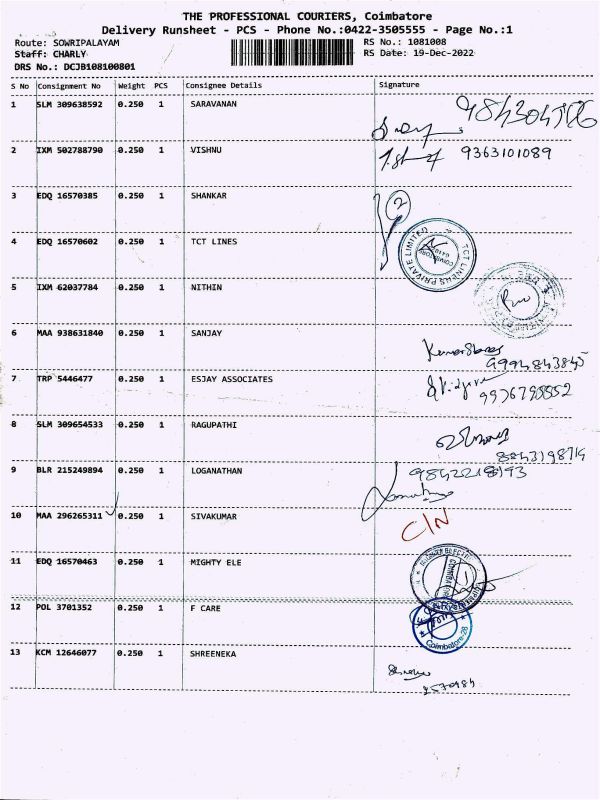 THE PROFESSIONAL COURIERS, Coimbatore
Delivery Runsheet - PCS - Phone No.:0422-3505555 - Page No.:1
Route: SOWRIPALAYAM RS No.: 1081008
Staff: CHARLY RS Date: 19-Dec-2022
DRS No.: DCJB108100801
S No Consignment No Weight PCS Consignee Details Signature
1 SLM 309638592 0.250 1 SARAVANAN
2 IXM 502788790 0.250 1 VISHNU 9363101089
3 EDQ 16570385 0.250 1 SHANKAR 2
4 EDQ 16570602 0.250 1 TCT LINES
TCT LINES PRIVATE LIMITED
5 IXM 62037784 0.250 1 NITHIN
6 MAA 938631840 0.250 1 SANJAY
9994843845
7 TRP 5446477 0.250 1 ESJAY ASSOCIATES
8 SLM 309654533 0.250 1 RAGUPATHI
9 BLR 215249894 0.250 1 LOGANATHAN
10 MAA 296265311 0.250 1 SIVAKUMAR C/N
11 EDQ 16570463 0.250 1 MIGHTY ELE
12 POL 3701352 0.250 1 F CARE
Coimbatore-28
13 KCM 12646077 0.250 1 SHREENEKA